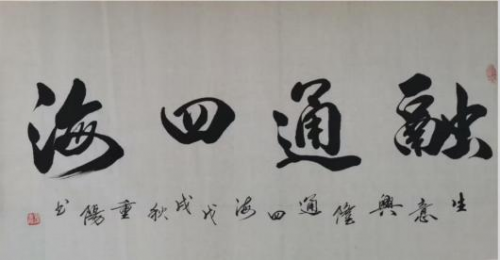 融通四海
生意興隆通四海戊戌秋重陽书